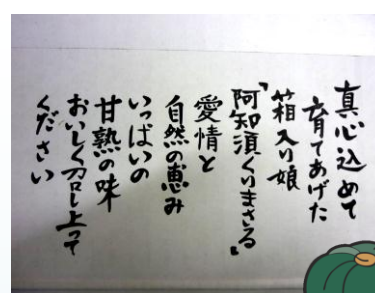 真心込めて
育てあげた
箱入り娘
「阿知須くりまさる」
愛情と
自然の恵み
いっぱいの
甘熟の味
おいしく召し上って
ください